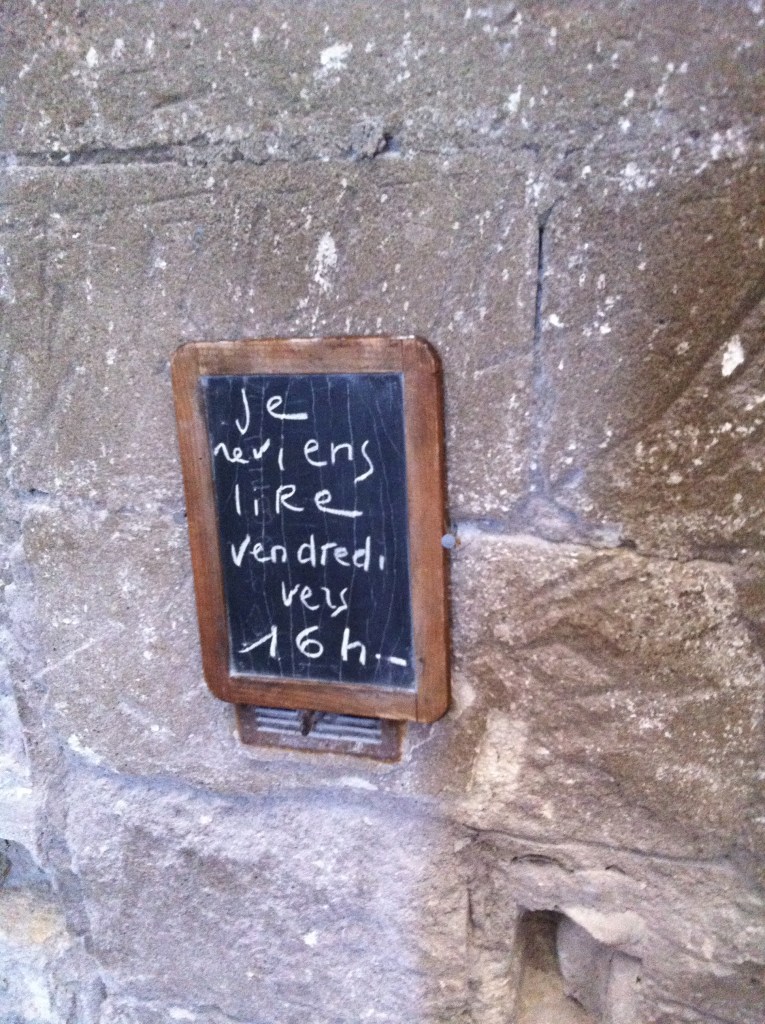 Je
reviens
lire
vendredi
vers
16h.-